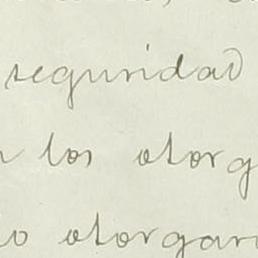 seguridad
los otorg
otorgan